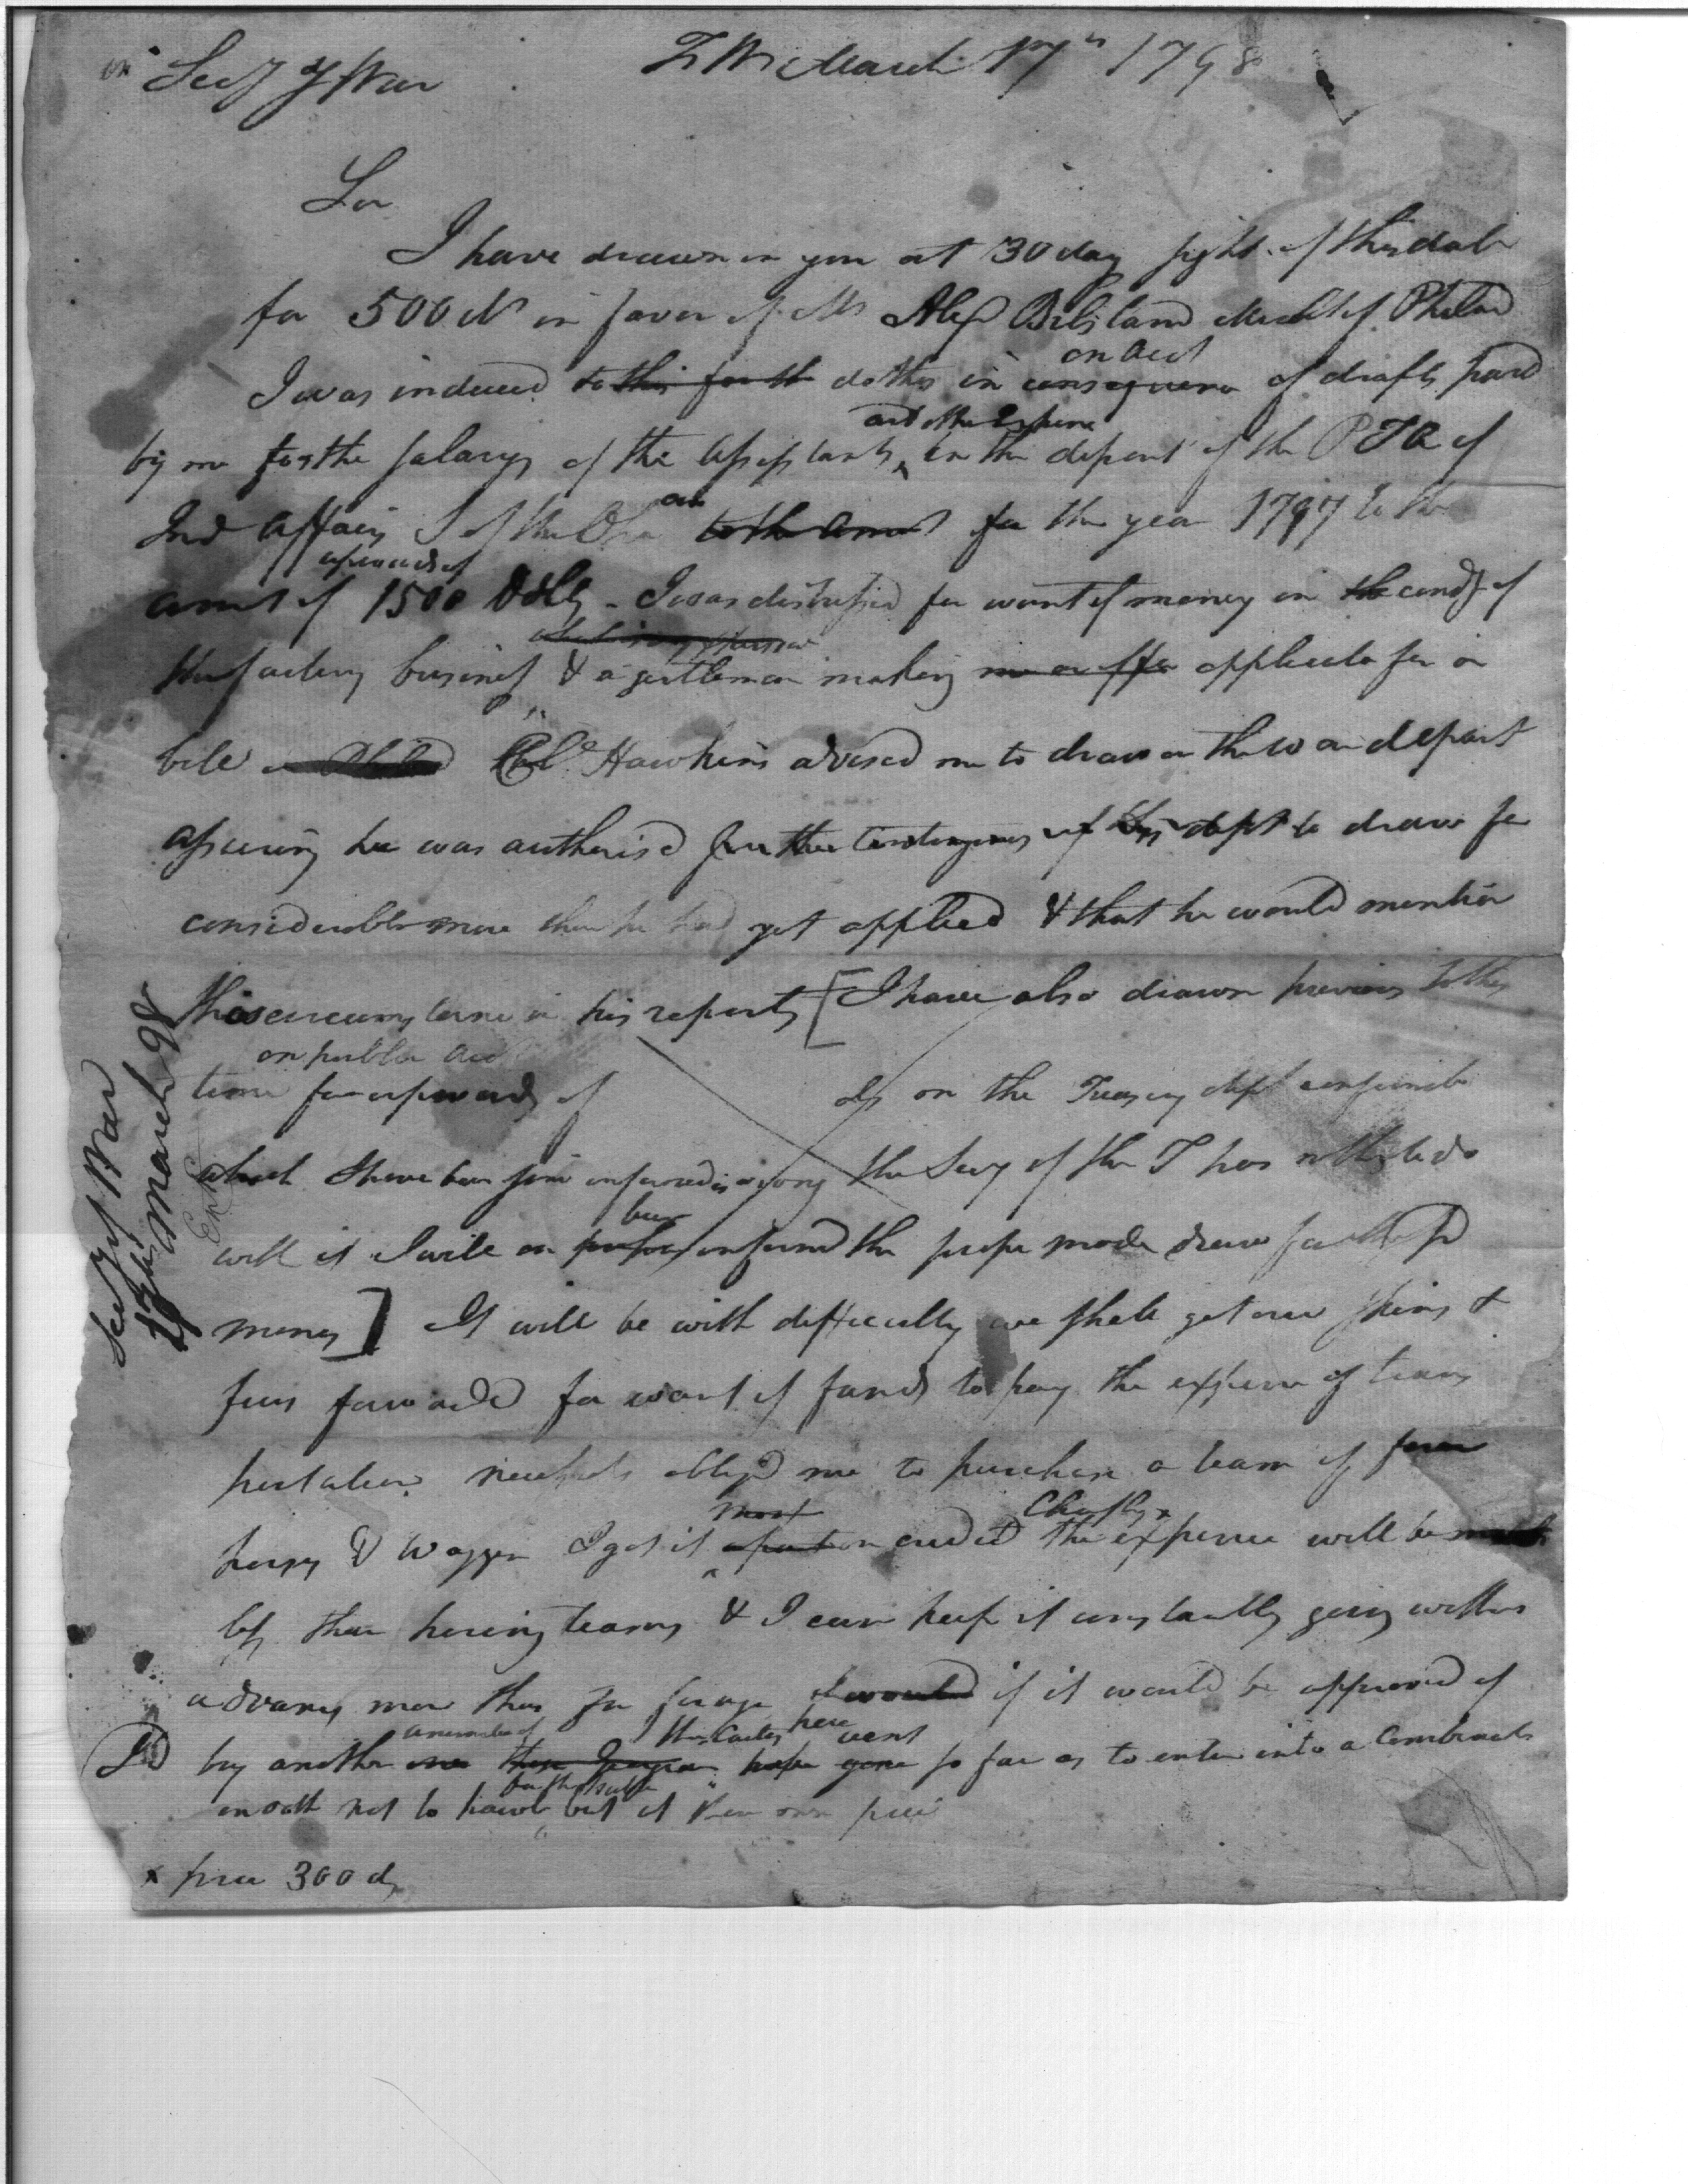 Secy of War
T W March 17th 1798
Sir
I have drawn on you at 30 day sight of this date
for 500 in favor of Mr Alexr Bilsland Mercht of Philad
I was induced to this for th do this in consequence on acct of drafts paid
by me for the salarys of the assistants and other Expense in the depart of the P T A of
Ind affairs S of the Ohio to the amot for the year 1797 to the
amot of upwards of 1500 Dolls - I was distressed for want of money in the conds of
the factory business & a gentleman making me an offer applicate for a
bill Col Hawkins advised me to draw on the war depart
assuring he was authorised for the Contingences of his dept to draw for
considerable more than he had yet applied & that he would mention
this circumstance in his reports [I have also drawn previous to this
time on public acct for upwards of ds on the Treasury dept
which I have been since informed is wrong the Secy of the T has nothing to do
with it I will been informed the proper mode draw for the sd
money] It will be with difficulty we shall get our skins &
furs forwarded for want of funds to pay the expense of trans
portation. obliged me to purchase a team of four
horses & waggon I got it most a part on credit Chiefly x the expense will be
less than hireing teams & I can keep it constantly going without
advancg more than for forage I would if it would be approved of
by another one a number of the Carters here went so far as to enter into a Combinate
on oath not to hawl for the public but at their own price
x price 300 ds
Secy of War
17th March 98